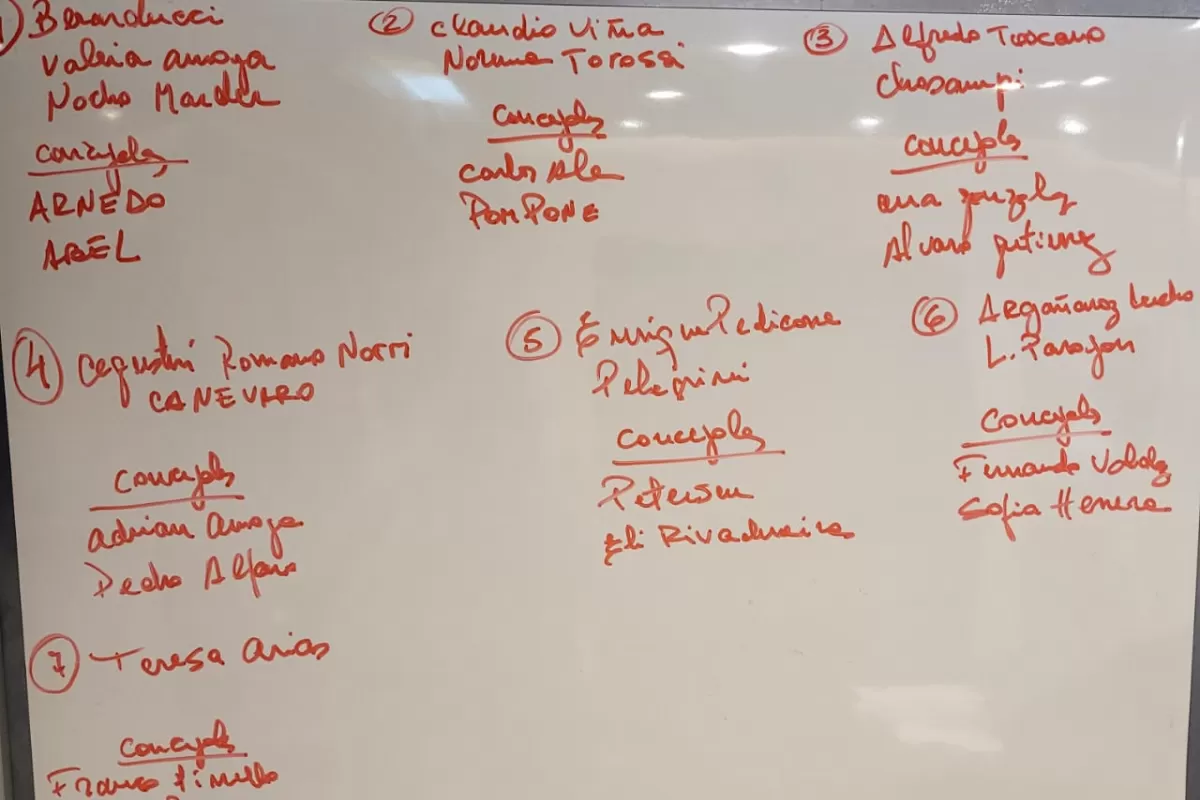 1 Berarducci
Valeria Amaya
Nocho Marder
Concejales
ARNEDO
ABEL
2 Claudio Viña
Norma Torossi
Concejales
Carlos Ale
POMPONE
3 Alfredo Toscano
Chasampi
Concejales
Ana Gonzalez
Alvaro Gutierrez
4 Agustín Romano Norri
CANEVARO
Concejales
Adrian Amaya
Pedro Alfaro
5 Enrique Pedicone
Pelegrini
Concejales
Petersen
Eli Rivadneira
6 Argañaraz Lucho
L. Parajon
Concejales
Fernando Valdez
Sofia Herrera
7 Teresa Arias
Concejales
Franco